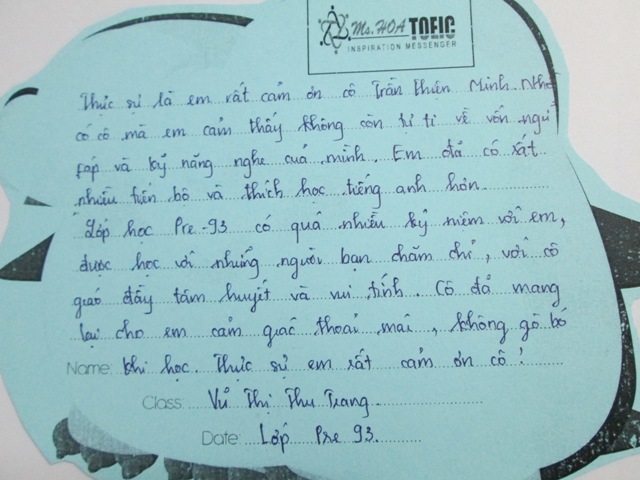 Ms. HOA TOEIC
INSPIRATION MESSENGER
Thực sự là em rất cảm ơn cô Trần Thiện Minh. Nhờ
có cô mà em cảm thấy không còn tự ti về vốn ngữ
pháp và kỹ năng nghe của mình. Em đã có rất
nhiều tiến bộ và thích học tiếng anh hơn.
Lớp học Pre-93 có quá nhiều kỷ niệm với em,
được học với những người bạn chăm chỉ, với cô
giáo đầy tâm huyết và vui tính. Cô đã mang
lại cho em cảm giác thoải mái, không gò bó
Name: khi học. Thực sự em rất cảm ơn cô!
Class: Vũ Thị Thu Trang
Date: Lớp Pre 93.